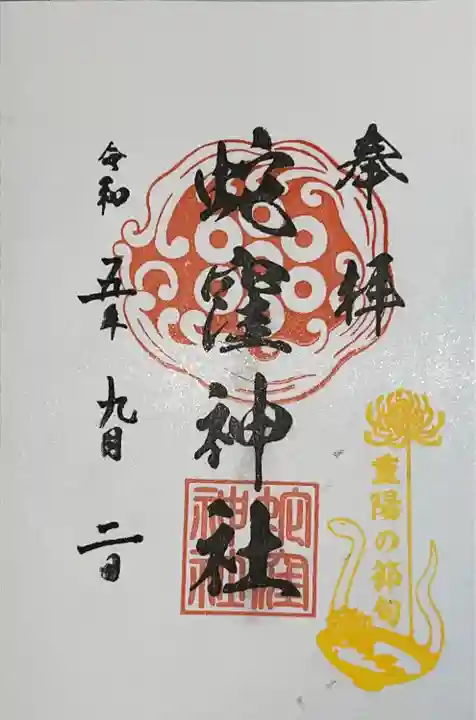 奉拝
蛇窪神社
令和五年九月二日
蛇窪神社
重陽の節句